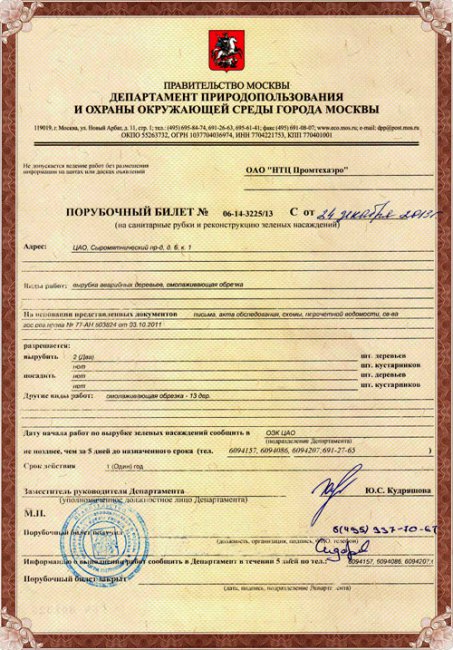 ПРАВИТЕЛЬСТВО МОСКВЫ
ДЕПАРТАМЕНТ ПРИРОДОПОЛЬЗОВАНИЯ
И ОХРАНЫ ОКРУЖАЮЩЕЙ СРЕДЫ ГОРОДА МОСКВЫ
119019, г. Москва, ул. Новый Арбат, д. 11, стр. 1; тел.: (495) 695-84-74, 691-26-63, 695-61-41; факс: (495) 691-08-07; www.eco.mos.ru; e-mail: dpp@post.mos.ru
ОКПО 55263732, ОГРН 1037704036974, ИНН 7704221753, КПП 770401001
Не допускается ведение работ без размещения
информации на щитах или досках объявлений
ОАО "НТЦ Промтехаэро"
ПОРУБОЧНЫЙ БИЛЕТ № 06-14-3225/13 С от 24 декабря 2013г
(на санитарные рубки и реконструкцию зеленых насаждений)
Адрес: ЦАО, Сыромятнический пр-д, д. 6, к. 1
Виды работ: вырубка аварийных деревьев, омолаживающая обрезка
На основании представленных документов письма, акта обследования, схемы, перечетной ведомости, св-ва
гос рег права № 77-АН 603824 от 03.10.2011
разрешается:
вырубить 2 (Два) шт. деревьев
нет шт. кустарников
посадить нет шт. деревьев
нет шт. кустарников
Другие виды работ: омолаживающая обрезка - 13 дер.
Дату начала работ по вырубке зеленых насаждений сообщить в ОЭК ЦАО
(подразделение Департамента)
не позднее, чем за 5 дней до назначенного срока (тел. 6094157, 6094086, 6094207, 691-27-63 )
Срок действия 1 (Один) год
Заместитель руководителя Департамента Ю.С. Кудряшова
(уполномоченное должностное лицо Департамента)
М.П.
Порубочный билет получил 8(495) 937-70-67
(должность, организация, подпись, ФИО, телефон)
Информацию о выполнении работ сообщить в Департамент в течении 5 дней по тел.: 6094157, 6094086, 6094207
Порубочный билет закрыт
(дата, подпись, подразделение Департамента)